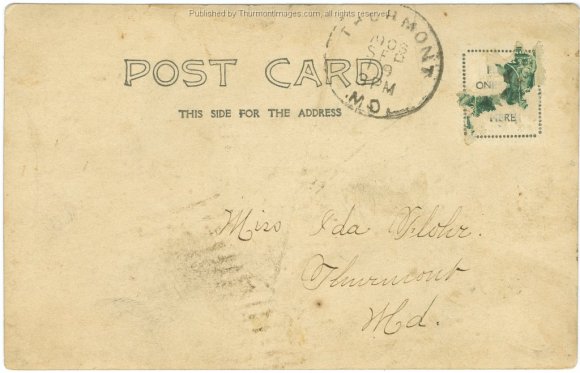 Published by Thurmontimages.com, all rights reserved
POST CARD
THIS SIDE FOR THE ADDRESS
MONT
9 PM
MD.
ONE
HERE
Miss Ida Flohr.
Thurmont
Md.